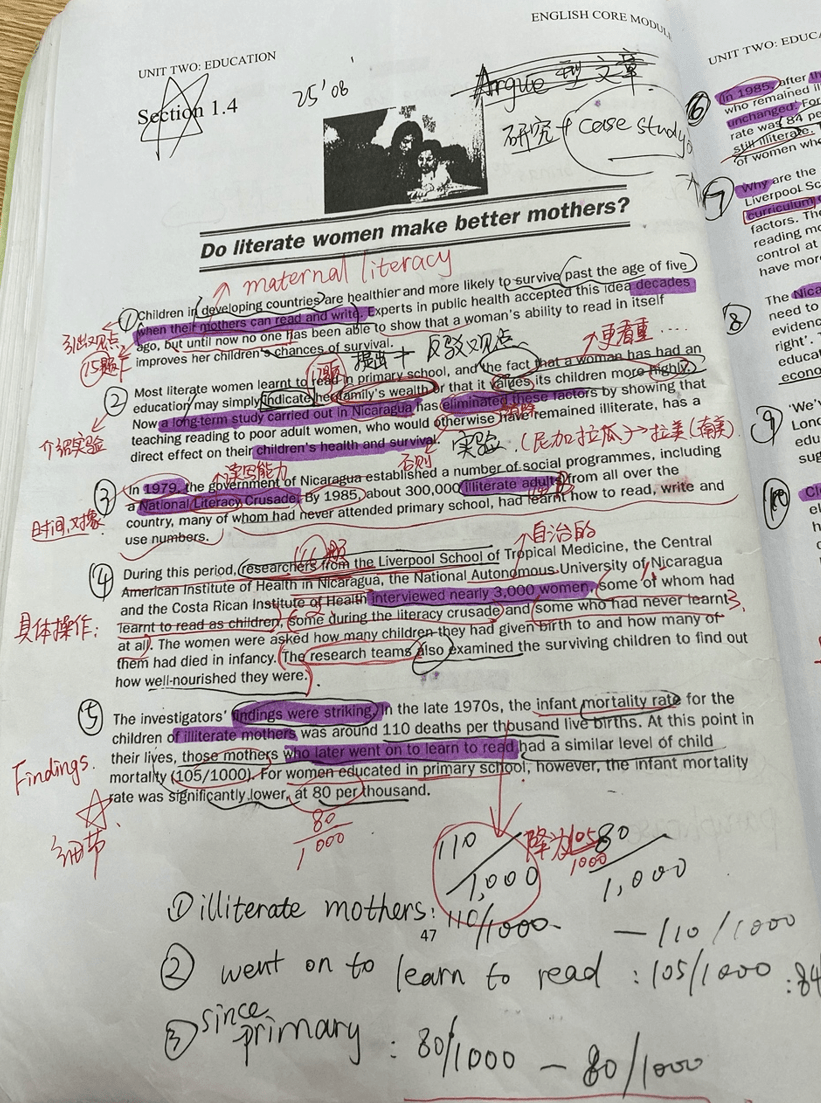 ENGLISH CORE MODUL
UNIT TWO: EDUCATION
Section 1.4
25'08
Argue 型文章
研究+case study
Do literate women make better mothers?
maternal literacy
① Children in developing countries are healthier and more likely to survive past the age of five
when their mothers can read and write. Experts in public health accepted this idea decades
ago, but until now no one has been able to show that a woman's ability to read in itself
improves her children's chances of survival.
引出观点
15题
提出+反驳观点
更看重....
② Most literate women learnt to read in primary school, and the fact that a woman has had an
education may simply indicate her family's wealth or that it values its children more highly.
Now a long-term study carried out in Nicaragua has eliminated these factors by showing that
teaching reading to poor adult women, who would otherwise have remained illiterate, has a
direct effect on their children's health and survival.
介绍实验
否则
实验.(尼加拉瓜)→拉美(南美)
③ In 1979, the government of Nicaragua established a number of social programmes, including
a National Literacy Crusade. By 1985, about 300,000 illiterate adults from all over the
country, many of whom had never attended primary school, had learnt how to read, write and
use numbers.
时间,对象
自治的
④ During this period, researchers from the Liverpool School of Tropical Medicine, the Central
American Institute of Health in Nicaragua, the National Autonomous University of Nicaragua
and the Costa Rican Institute of Health interviewed nearly 3,000 women, some of whom had
learnt to read as children, some during the literacy crusade and some who had never learnt
at all. The women were asked how many children they had given birth to and how many of
them had died in infancy. The research teams also examined the surviving children to find out
how well-nourished they were.
具体操作:
⑤ The investigators' findings were striking. In the late 1970s, the infant mortality rate for the
children of illiterate mothers was around 110 deaths per thousand live births. At this point in
their lives, those mothers who later went on to learn to read had a similar level of child
mortality (105/1000). For women educated in primary school, however, the infant mortality
rate was significantly lower, at 80 per thousand.
Findings.
细节
80/1000
110/1,000
降为105/1000
80/1,000
① illiterate mothers: 110/1000 — 110/1000
47
② went on to learn to read : 105/1000 :84
③ since primary : 80/1000 — 80/1000
UNIT TWO: EDUCA
⑥ In 1985, after th
who remained il
unchanged. For
rate was 84 pe
still illiterate.
of women who
⑦ Why are the
Liverpool Sc
curriculum
factors. The
reading mo
control at
have mor
⑧ The Nica
need to
evidenc
right'. T
educat
econo
⑨ 'We'v
Lond
edu
sug
⑩ Cl
el
h